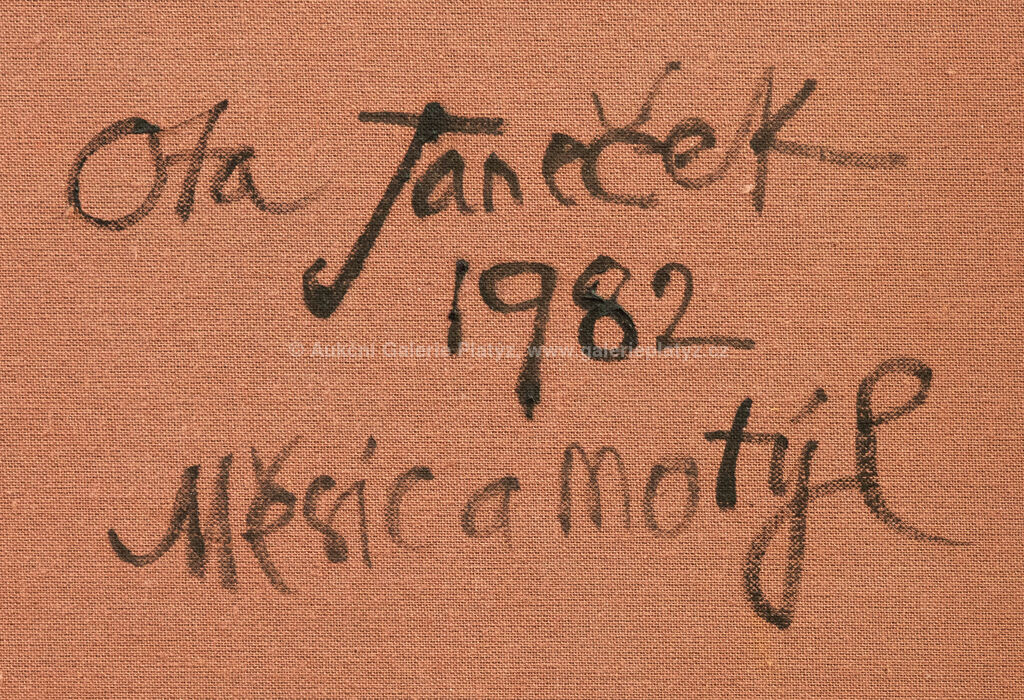 Ota Janeček
1982
© Aukční Galerie Platýz, www.galerieplatyz.cz
Měsíc a motýl